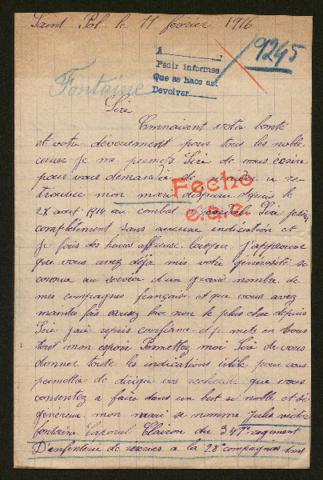 Saint Pol le 11 fevrier 1916
A
Pedir informes
Que se hace así
Devolver
9245
Fontaine
Sire
Connaissant votre bonté
et votre dévouement pour tous les noble
cause je me permets Sire de vous écrire
pour vous demander de m'aider a re
trouver mon mari disparu depuis le
28 aout 1914 au combat Sire
complètement sans aucune indication et
je fais des heures affreuse
que vous avez déjà mis votre générosité se
au service d'un grand nombre de
mes compagnes française, et que vous avez
maintes fois réussi
Fecho
C.S.C.
Sire j'ai repris confiance et je mets en vous
tout mon espoir Permettez moi Sire de vous
donner toute les indications utile pour vous
permettre de diriger vos recherche que vous
consentez a faire dans un but si noble et si
généreux mon mari se nomme Jules
fontaine Caporal Clairon du 347e regiment
D'enfenterie de reserves a la 28e compagnie